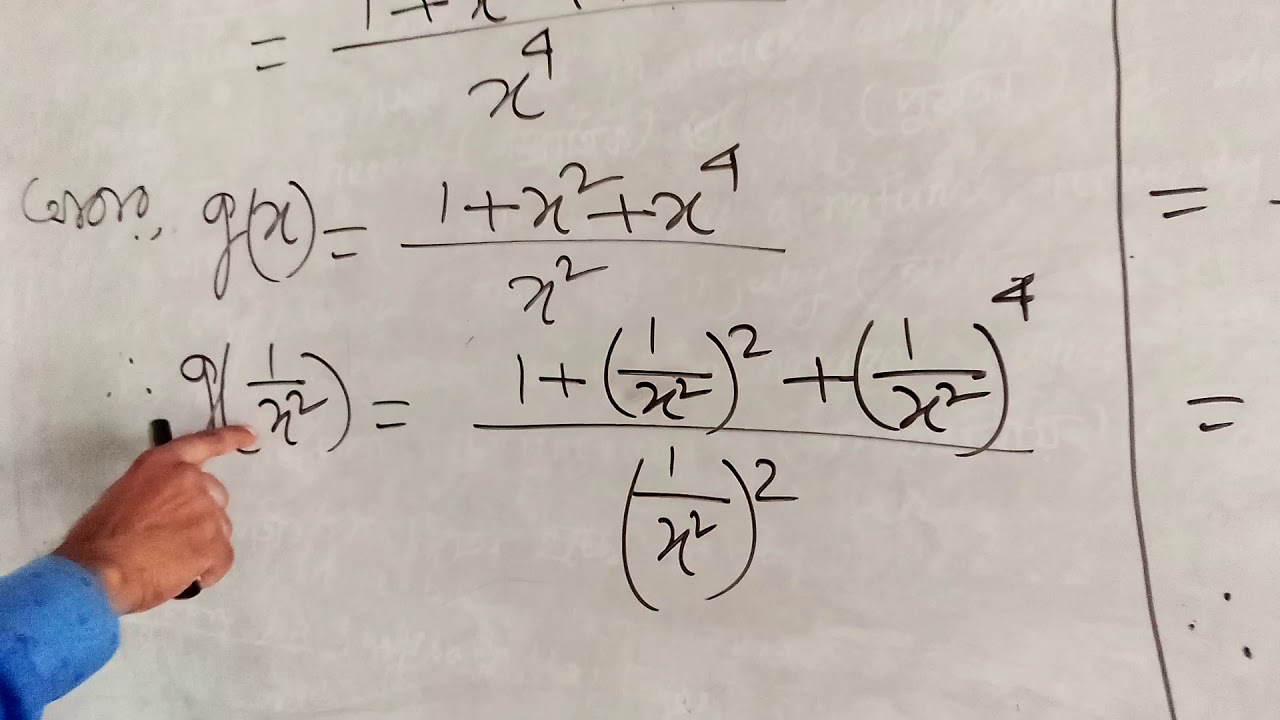 = x⁴
g(x) = (1+x²+x⁴)/x²
∴ g(1/x²) = (1+(1/x²)²+(1/x²)⁴)/(1/x²)²
=
=
∴